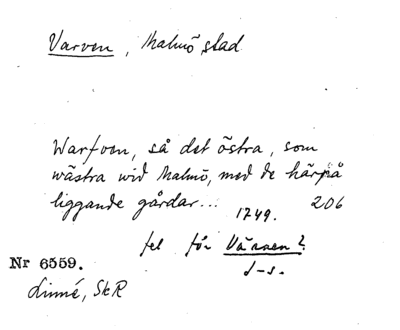 Varven, Malmö stad
Warfven, så det östra, som
wästra wid Malmö, med de härpå
liggande gårdar... 1749. 206
fel för Värnen?
d-s.
Nr 6559.
Linné, SkR